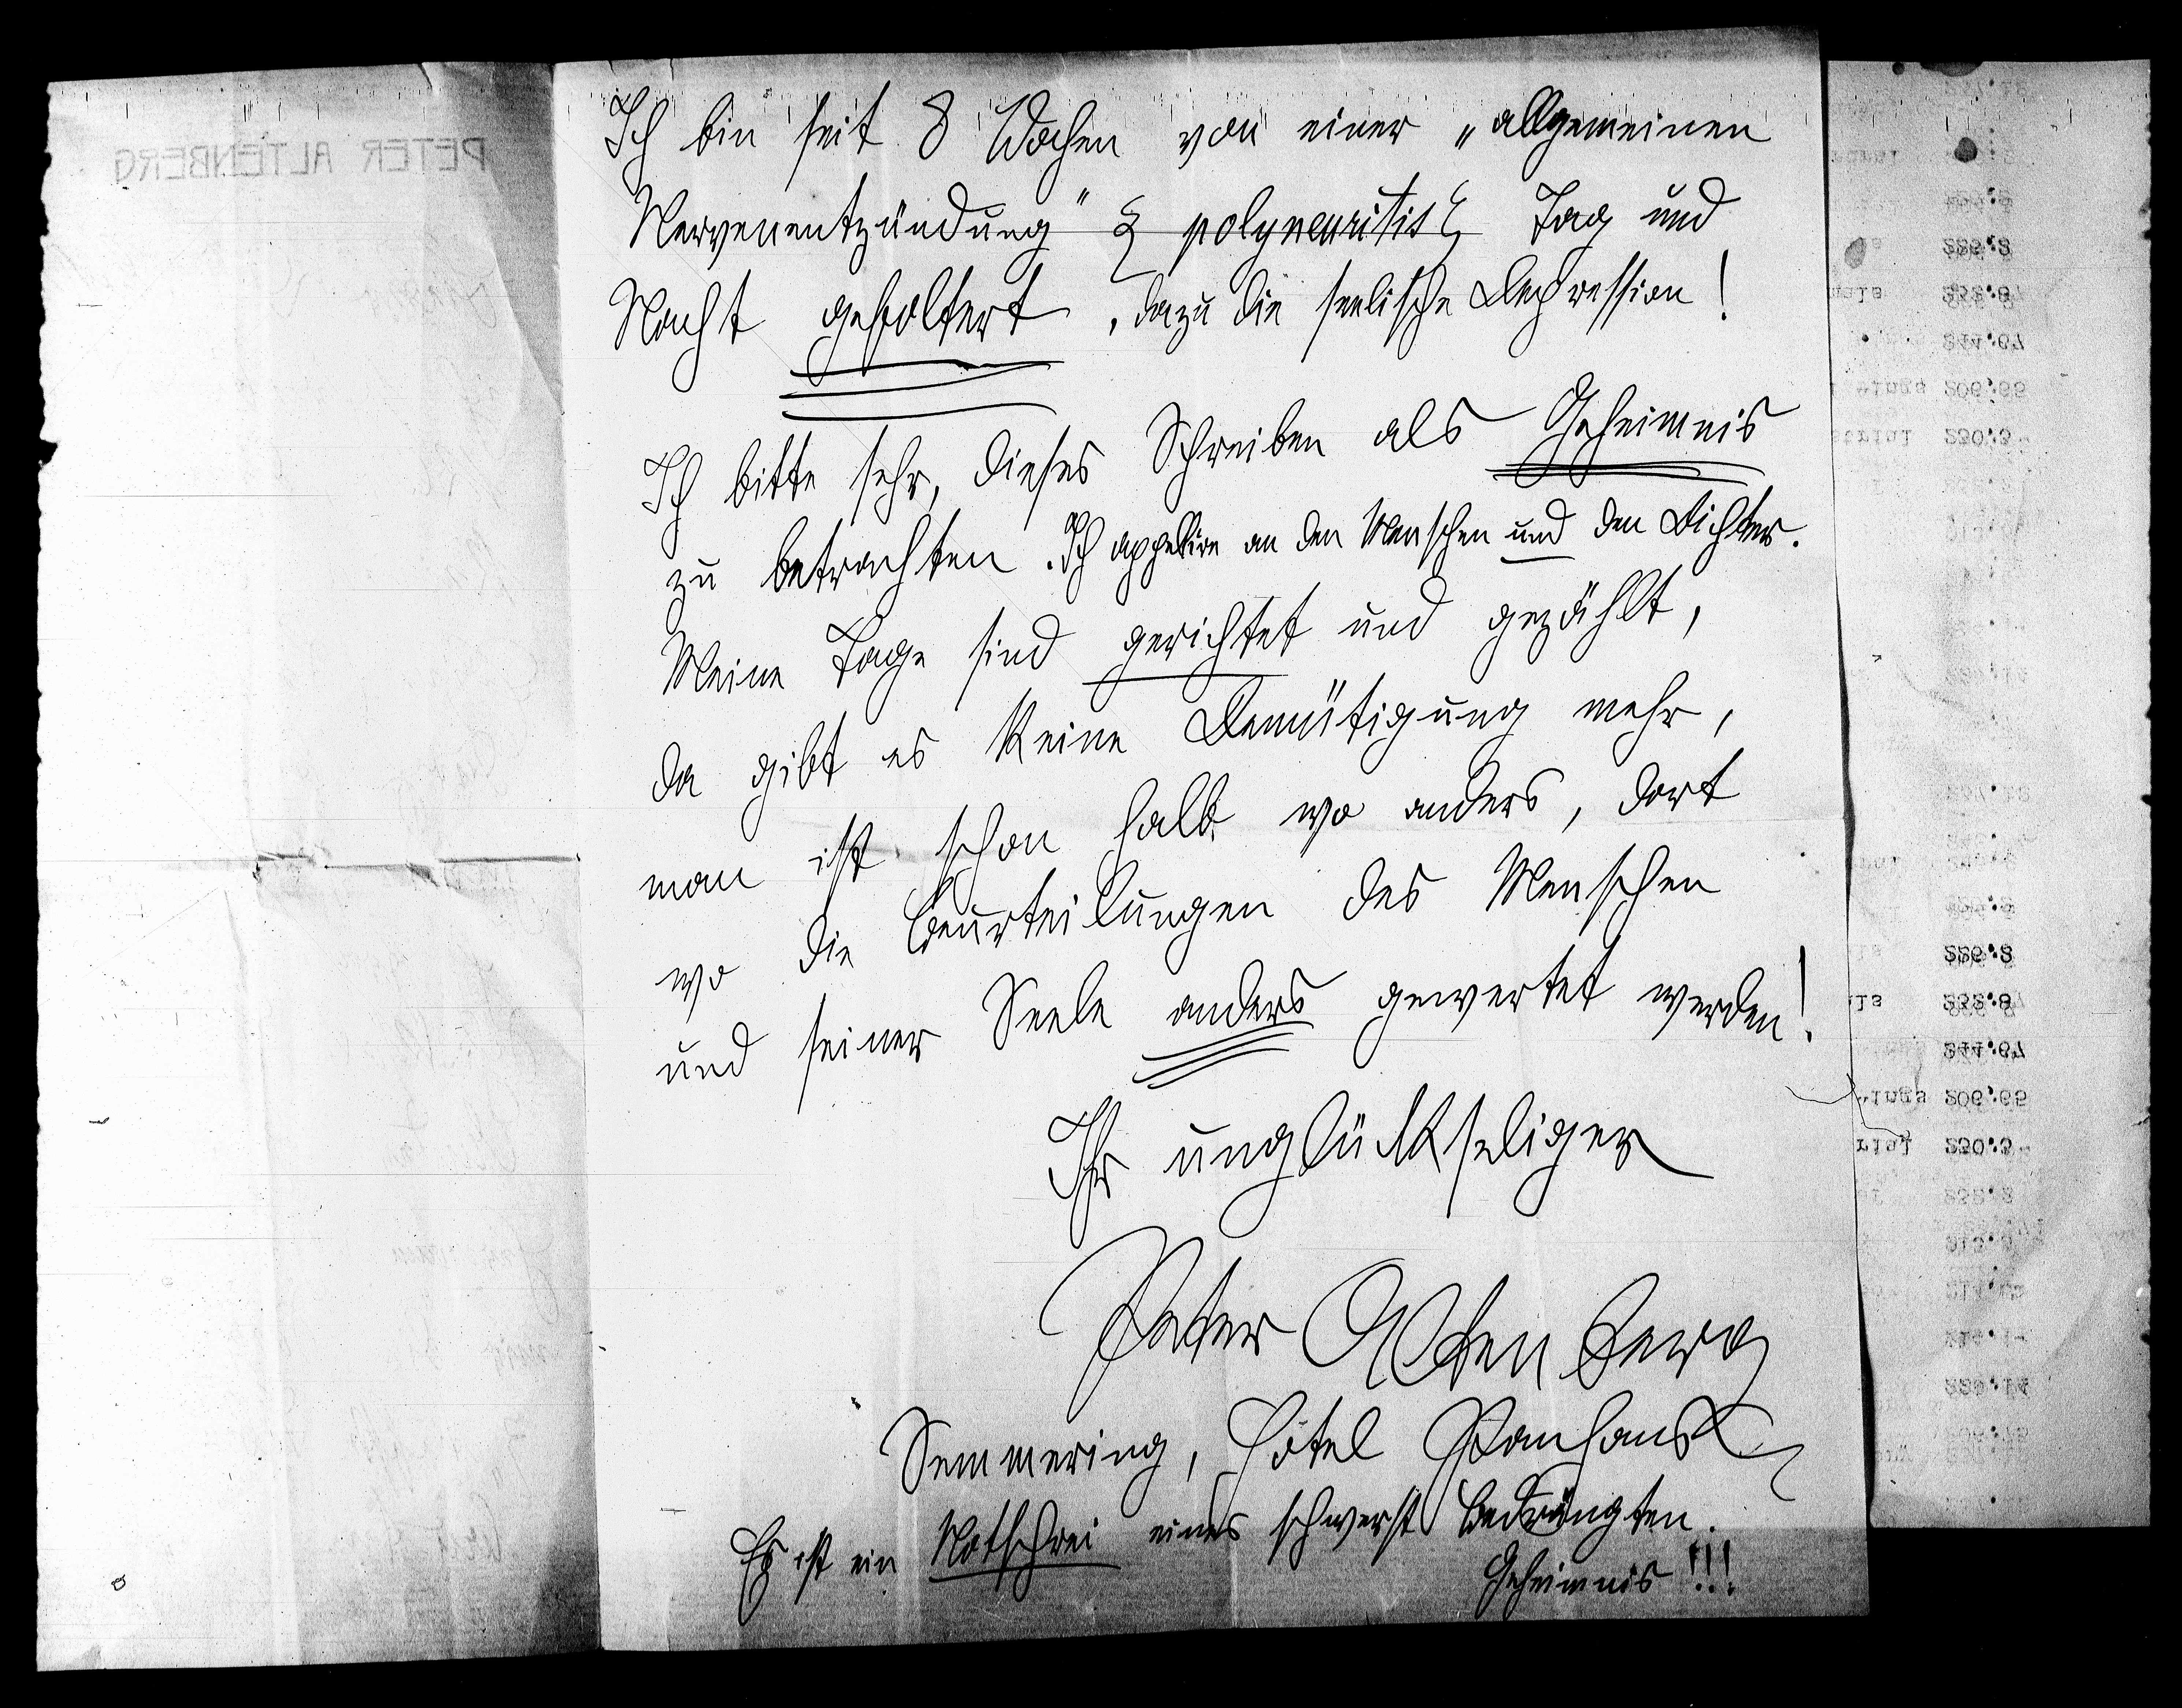 Ich bin seit 8 Wochen von einer „allgemeinen
Nervenentzündung" { polyneuritis } Tag und
Nacht gefoltert, dazu die seelische Depression!
Ich bitte sehr, dieses Schreiben als Geheimnis
zu betrachten. Ich appelire an den Menschen und den Dichter.
Meine Tage sind gerichtet und gezählt,
da gibt es keine Demütigung mehr,
man ist schon halb wo anders, dort
wo die Beurteilungen des Menschen
und seiner Seele anders gewertet werden!
Ihr unglückseliger
Peter Altenberg
Semmering, Hôtel Panhans
Es ist ein Notschrei eines schwerst Bedrängten.
Geheimnis!!!
PETER ALTENBERG
226,2
232,8
244,67
206,65
230,3